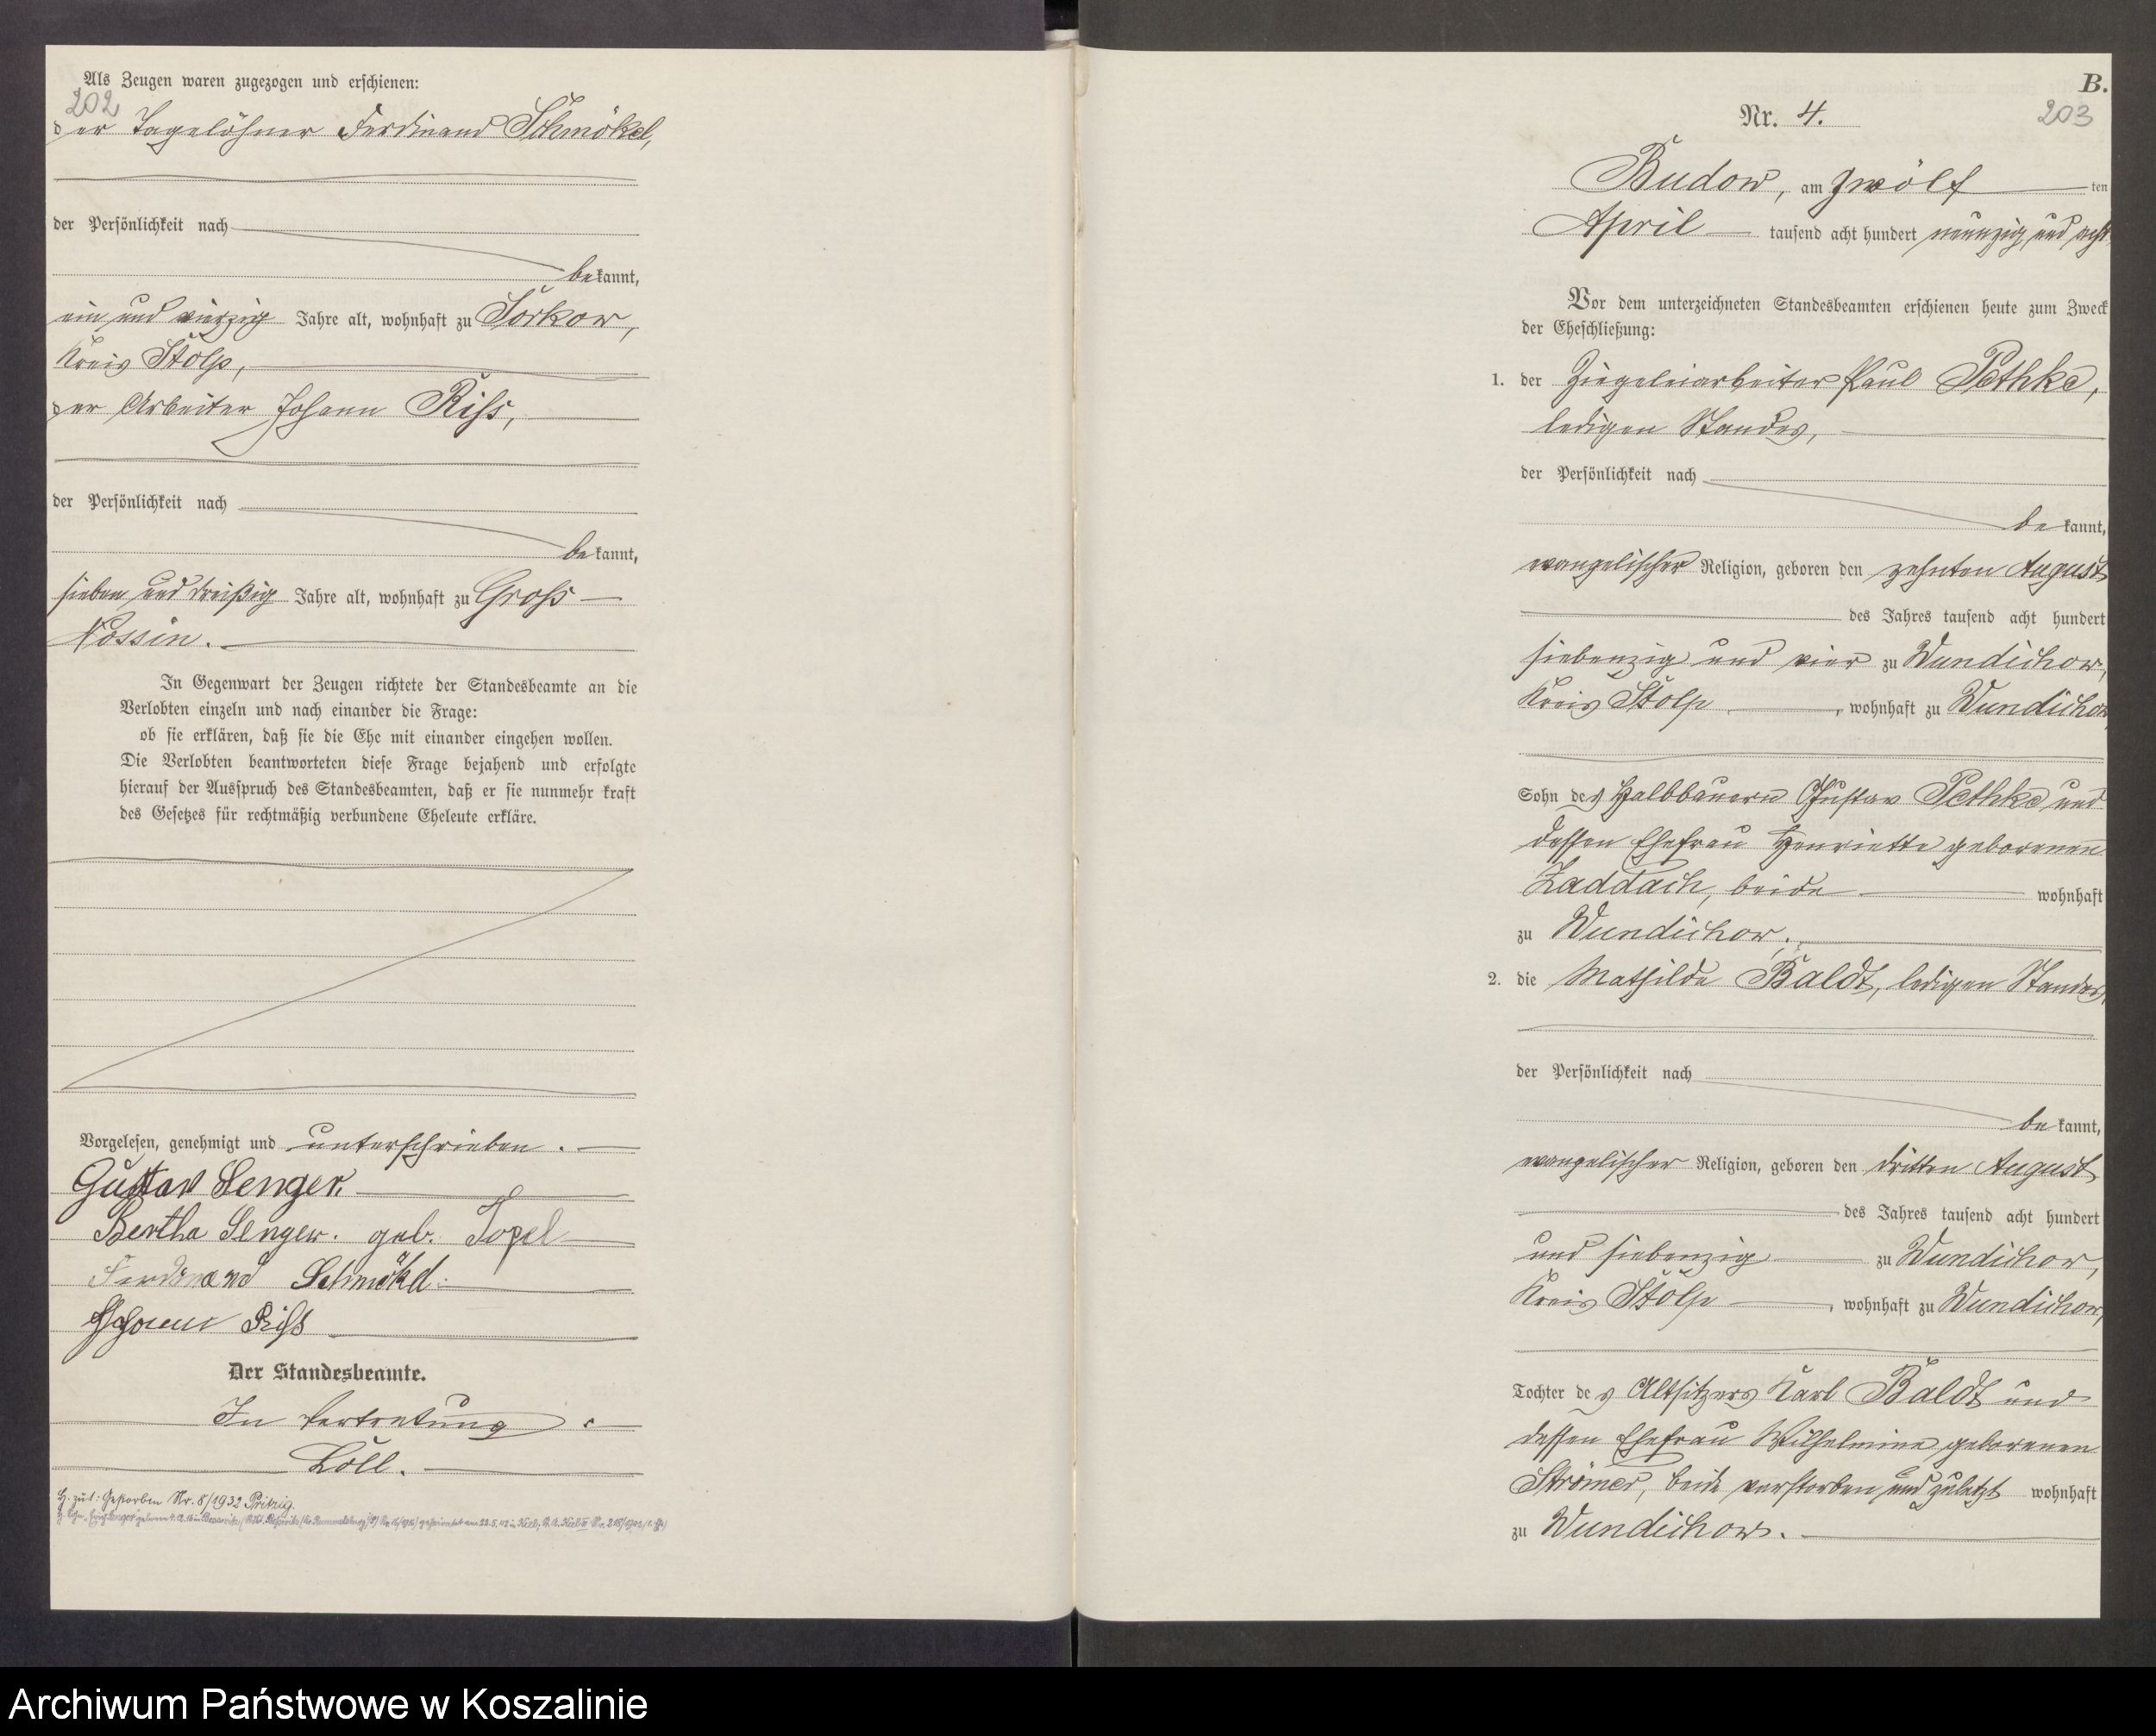 Als Zeugen waren zugezogen und erschienen:
202
der Tagelöhner Ferdinand Schmökel,
der Persönlichkeit nach
bekannt,
ein und vierzig Jahre alt, wohnhaft zu Sorkow,
Kreis Stolp,
der Arbeiter Johann Riss,
der Persönlichkeit nach
bekannt,
sieben und dreißig Jahre alt, wohnhaft zu Gross
Nossin.
In Gegenwart der Zeugen richtete der Standesbeamte an die
Verlobten einzeln und nach einander die Frage:
ob sie erklären, daß sie die Ehe mit einander eingehen wollen.
Die Verlobten beantworteten diese Frage bejahend und erfolgte
hierauf der Ausspruch des Standesbeamten, daß er sie nunmehr kraft
des Gesetzes für rechtmäßig verbundene Eheleute erkläre.
Vorgelesen, genehmigt und unterschrieben.
Gustav Senger.
Bertha Senger. geb. Topel
Ferdinand Schmökel.
Johann Riß
Der Standesbeamte.
In Vertretung.
Löll.
H. zul: Gestorben Nr. 8/1932 Pritzig.
B.
Nr. 4.
203
Budow, am zwölf ten
April tausend acht hundert neunzig und acht
Vor dem unterzeichneten Standesbeamten erschienen heute zum Zweck
der Eheschließung:
1. der Ziegeleiarbeiter Paul Pethke,
ledigen Standes,
der Persönlichkeit nach
bekannt,
evangelischer Religion, geboren den zehnten August
des Jahres tausend acht hundert
siebenzig und vier zu Wundichow,
Kreis Stolp, wohnhaft zu Wundichow
Sohn des Halbbauern Gustav Pethke und
dessen Ehefrau Henriette geborenen
Zaddach, beide wohnhaft
zu Wundichow.
2. die Mathilde Baldt, ledigen Standes,
der Persönlichkeit nach
bekannt,
evangelischer Religion, geboren den dritten August
des Jahres tausend acht hundert
und siebenzig zu Wundichow,
Kreis Stolp, wohnhaft zu Wundichow,
Tochter des Altsitzers Karl Baldt und
dessen Ehefrau Wilhelmine geborenen
Strömer, beide verstorben und zuletzt wohnhaft
zu Wundichow.
Archiwum Państwowe w Koszalinie